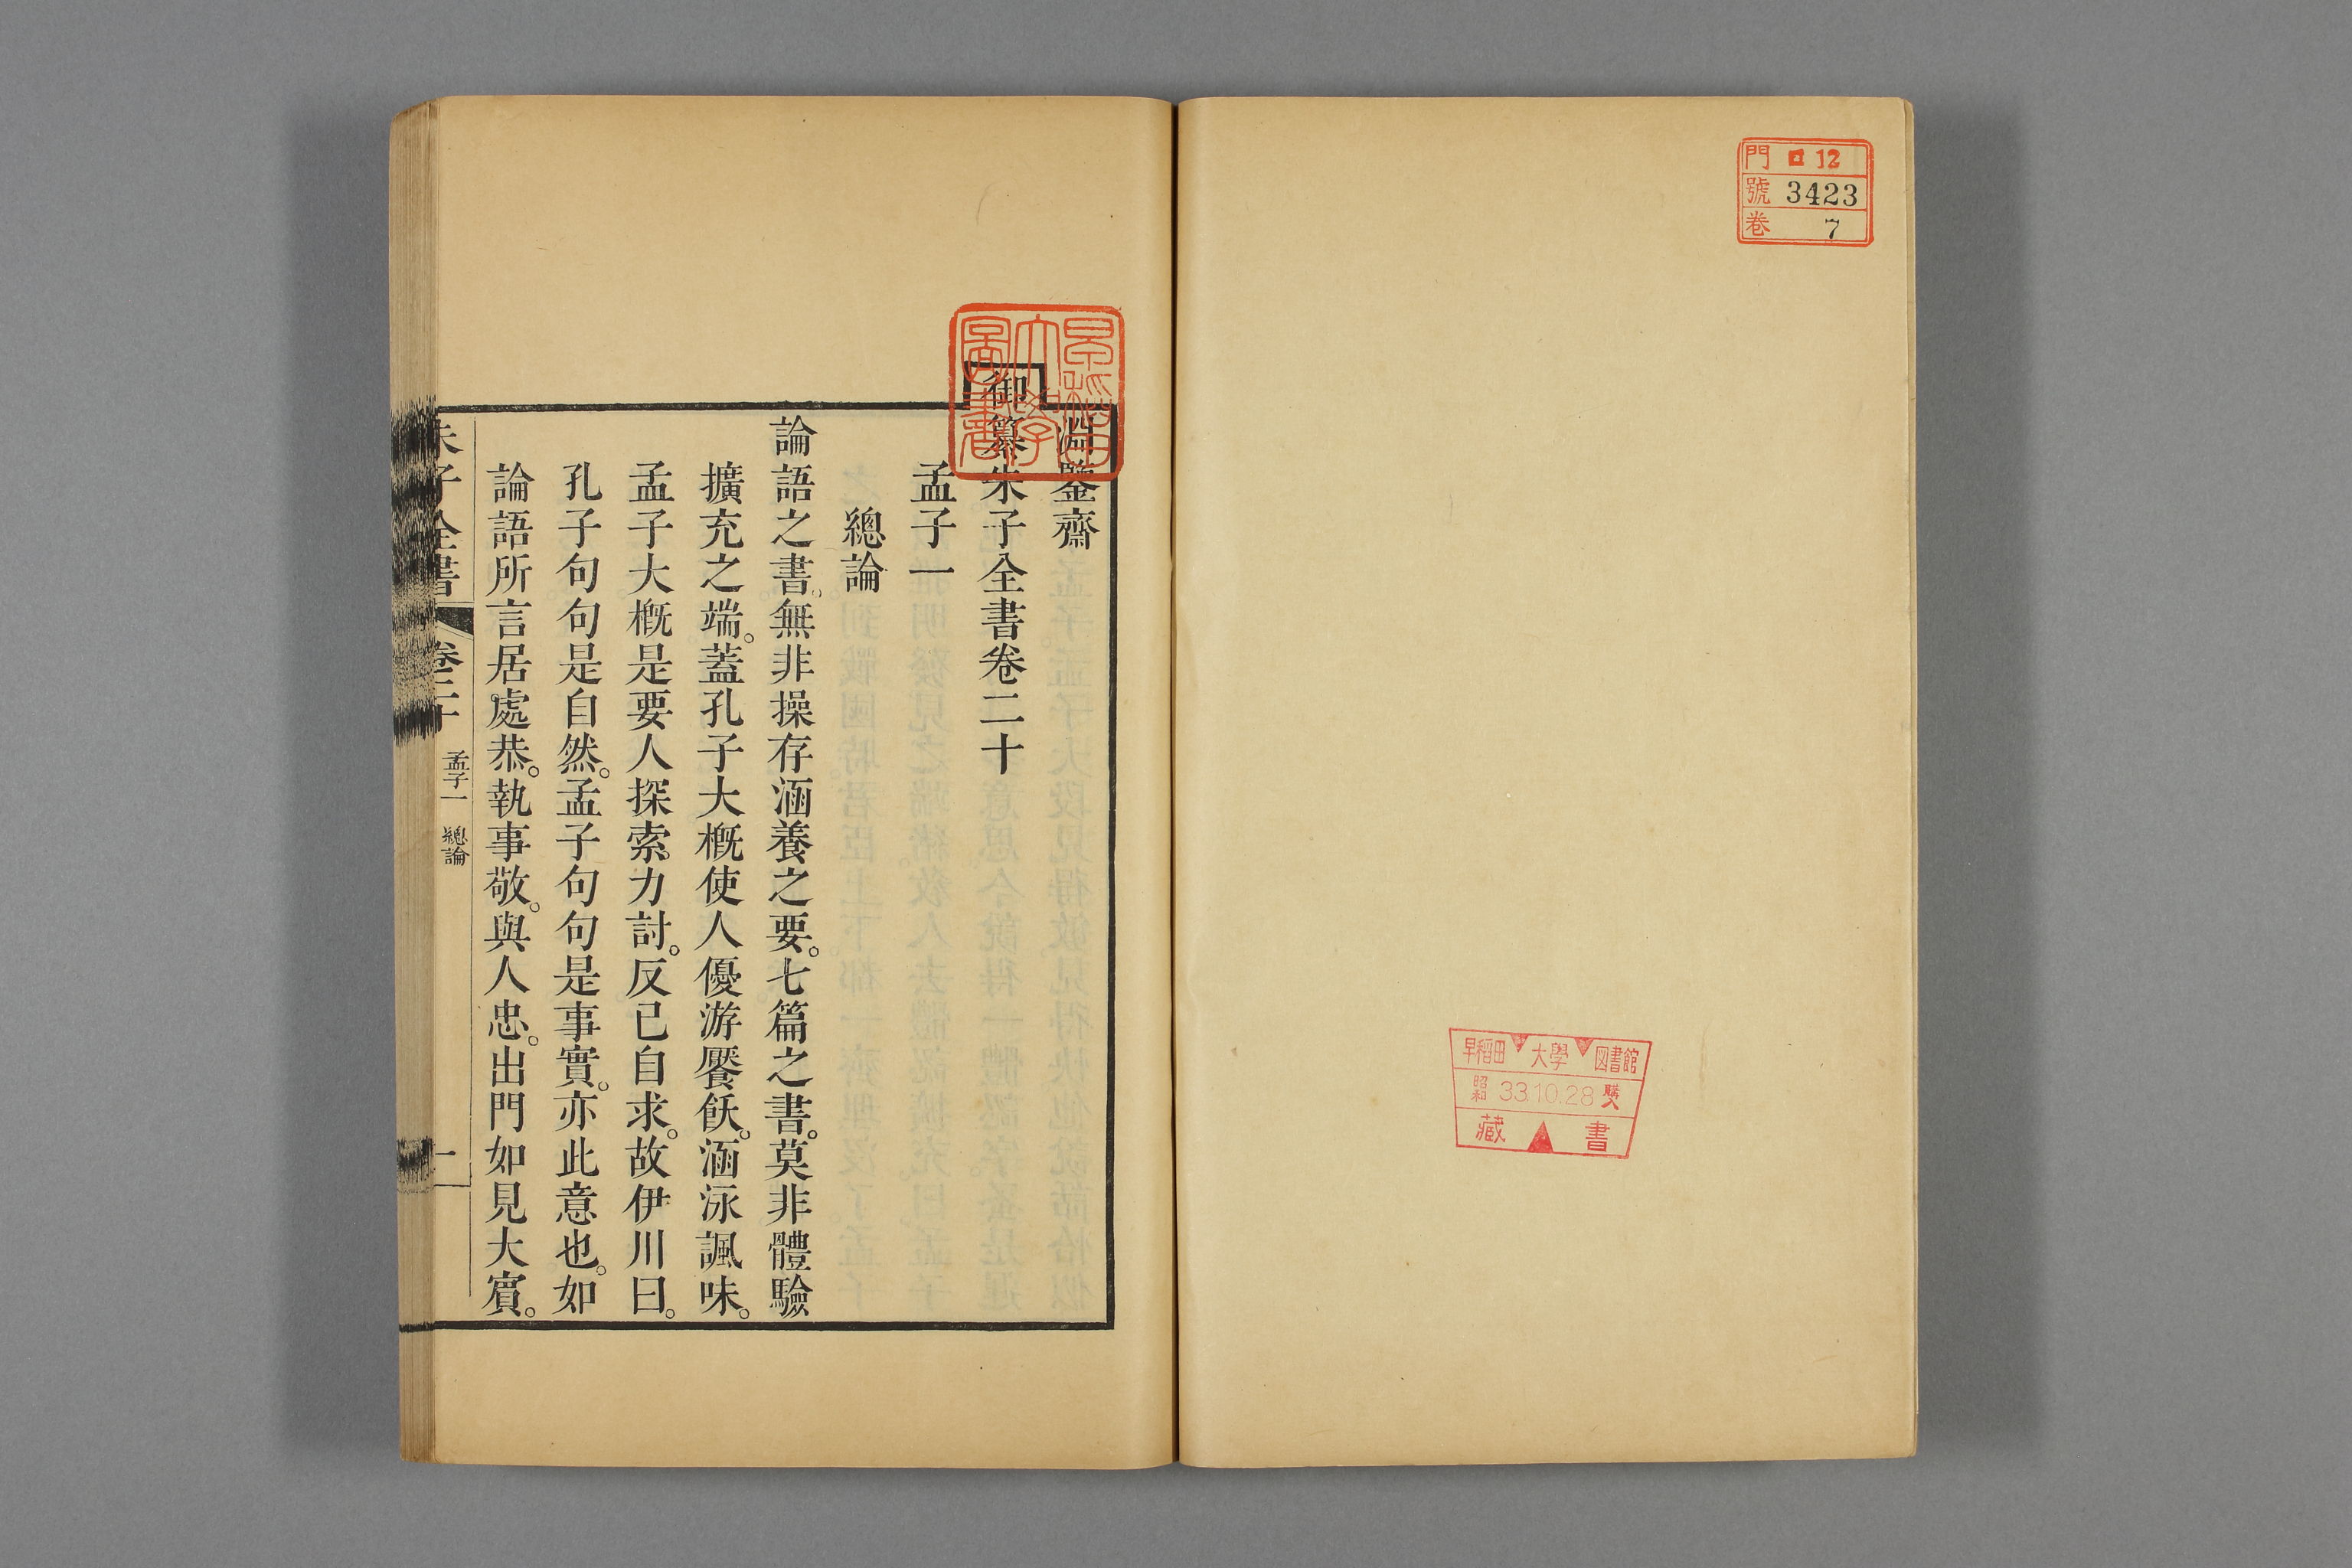 門 ロ 12
號 3423
卷 7
早稻田 大學 図書館
昭和 33.10.28 購入
藏書
早稲田大學圖書
淵鑒齋
御纂朱子全書卷二十
孟子一
總論
論語之書。無非操存涵養之要。七篇之書。莫非體驗
擴充之端。蓋孔子大概使人優游饜飫。涵泳諷味。
孟子大概是要人探索力討。反己自求。故伊川曰。
孔子句句是自然。孟子句句是事實。亦此意也。如
論語所言居處恭。執事敬。與人忠。出門如見大賓。
朱子全書 卷二十 孟子一 總論 一